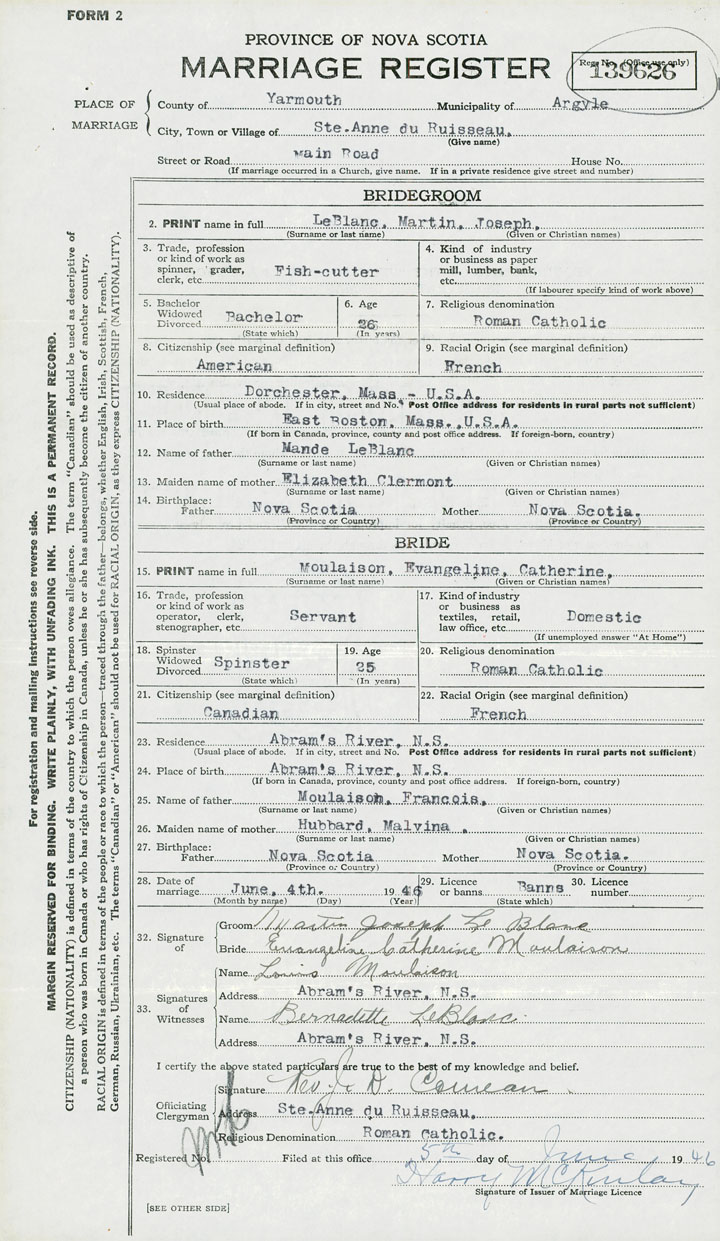 FORM 2
PROVINCE OF NOVA SCOTIA
MARRIAGE REGISTER
Reg. No. (Office use only)
139626
PLACE OF MARRIAGE
County of Yarmouth Municipality of Argyle
City, Town or Village of Ste.Anne du Ruisseau,
(Give name)
Street or Road Main Road House No.
(If marriage occurred in a Church, give name. If in a private residence give street and number)
BRIDEGROOM
2. PRINT name in full LeBlanc, Martin, Joseph,
(Surname or last name) (Given or Christian names)
3. Trade, profession or kind of work as spinner, grader, clerk, etc. Fish-cutter
4. Kind of industry or business as paper mill, lumber, bank, etc.
(If labourer specify kind of work above)
5. Bachelor Widowed Divorced Bachelor
(State which)
6. Age 26
(In years)
7. Religious denomination
Roman Catholic
8. Citizenship (see marginal definition)
American
9. Racial Origin (see marginal definition)
French
10. Residence Dorchester, Mass - U.S.A.
(Usual place of abode. If in city, street and No. Post Office address for residents in rural parts not sufficient)
11. Place of birth East Boston, Mass. U.S.A.
(If born in Canada, province, county and post office address. If foreign-born, country)
12. Name of father Mande LeBlanc
(Surname or last name) (Given or Christian names)
13. Maiden name of mother Elizabeth Clermont
(Surname or last name) (Given or Christian names)
14. Birthplace:
Father Nova Scotia Mother Nova Scotia.
(Province or Country) (Province or Country)
BRIDE
15. PRINT name in full Moulaison, Evangeline, Catherine,
(Surname or last name) (Given or Christian names)
16. Trade, profession or kind of work as operator, clerk, stenographer, etc. Servant
17. Kind of industry or business as textiles, retail, law office, etc. Domestic
(If unemployed answer "At Home")
18. Spinster Widowed Divorced Spinster
(State which)
19. Age 25
(In years)
20. Religious denomination
Roman Catholic
21. Citizenship (see marginal definition)
Canadian
22. Racial Origin (see marginal definition)
French
23. Residence Abram's River, N.S.
(Usual place of abode. If in city, street and No. Post Office address for residents in rural parts not sufficient)
24. Place of birth Abram's River, N.S.
(If born in Canada, province, county and post office address. If foreign-born, country)
25. Name of father Moulaison, Francois,
(Surname or last name) (Given or Christian names)
26. Maiden name of mother Hubbard, Malvina .
(Surname or last name) (Given or Christian names)
27. Birthplace:
Father Nova Scotia Mother Nova Scotia.
(Province or Country) (Province or Country)
28. Date of marriage June, 4th. 1946
(Month by name) (Day) (Year)
29. Licence or banns Banns
(State which)
30. Licence number
32. Signature of
Groom Martin Joseph Le Blanc
Bride Evangeline Catherine Moulaison
33. Signatures of Witnesses
Name Louis Moulaison
Address Abram's River, N.S.
Name Bernadette LeBlanc
Address Abram's River, N.S.
I certify the above stated particulars are true to the best of my knowledge and belief.
Officiating Clergyman
Signature Rev. J. D. Comeau
Address Ste.Anne du Ruisseau.
Religious Denomination Roman Catholic.
Registered No. Filed at this office 5th day of June 1946
Harry McKinlay
Signature of Issuer of Marriage Licence
[SEE OTHER SIDE]
For registration and mailing instructions see reverse side.
MARGIN RESERVED FOR BINDING. WRITE PLAINLY, WITH UNFADING INK. THIS IS A PERMANENT RECORD.
CITIZENSHIP (NATIONALITY) is defined in terms of the country to which the person owes allegiance. The term "Canadian" should be used as descriptive of
a person who was born in Canada or who has rights of Citizenship in Canada, unless he or she has subsequently become the citizen of another country.
RACIAL ORIGIN is defined in terms of the people or race to which the person—traced through the father—belongs, whether English, Irish, Scottish, French,
German, Russian, Ukrainian, etc. The terms "Canadian" or "American" should not be used for RACIAL ORIGIN, as they express CITIZENSHIP (NATIONALITY).